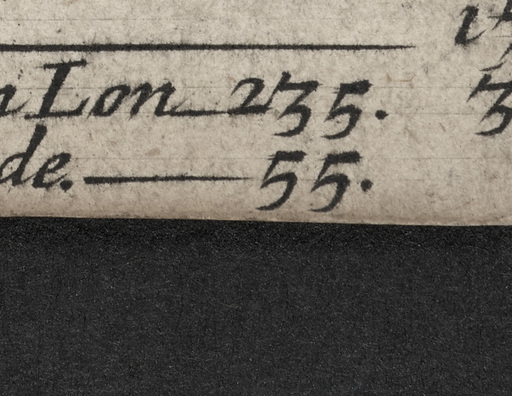 n Lon 235.
de. 55.